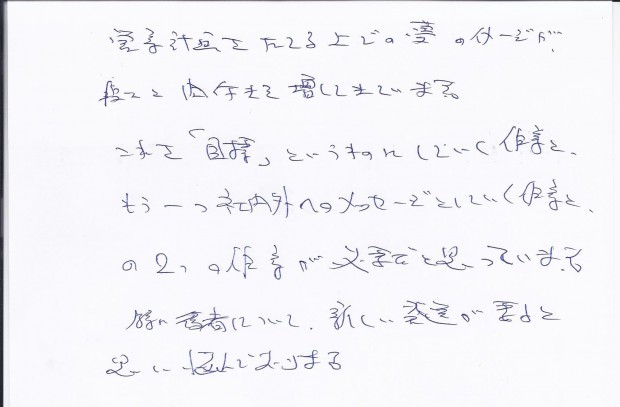 計画をたてる上での夢のイメージが、
段々と内容を増してきています。
これを「目標」というものにしていく作業と、
もう一つ社内外へのメッセージとしていく作業と、
の2つの作業が必要だと思っています
後者について、新しい発想が要ると
思い